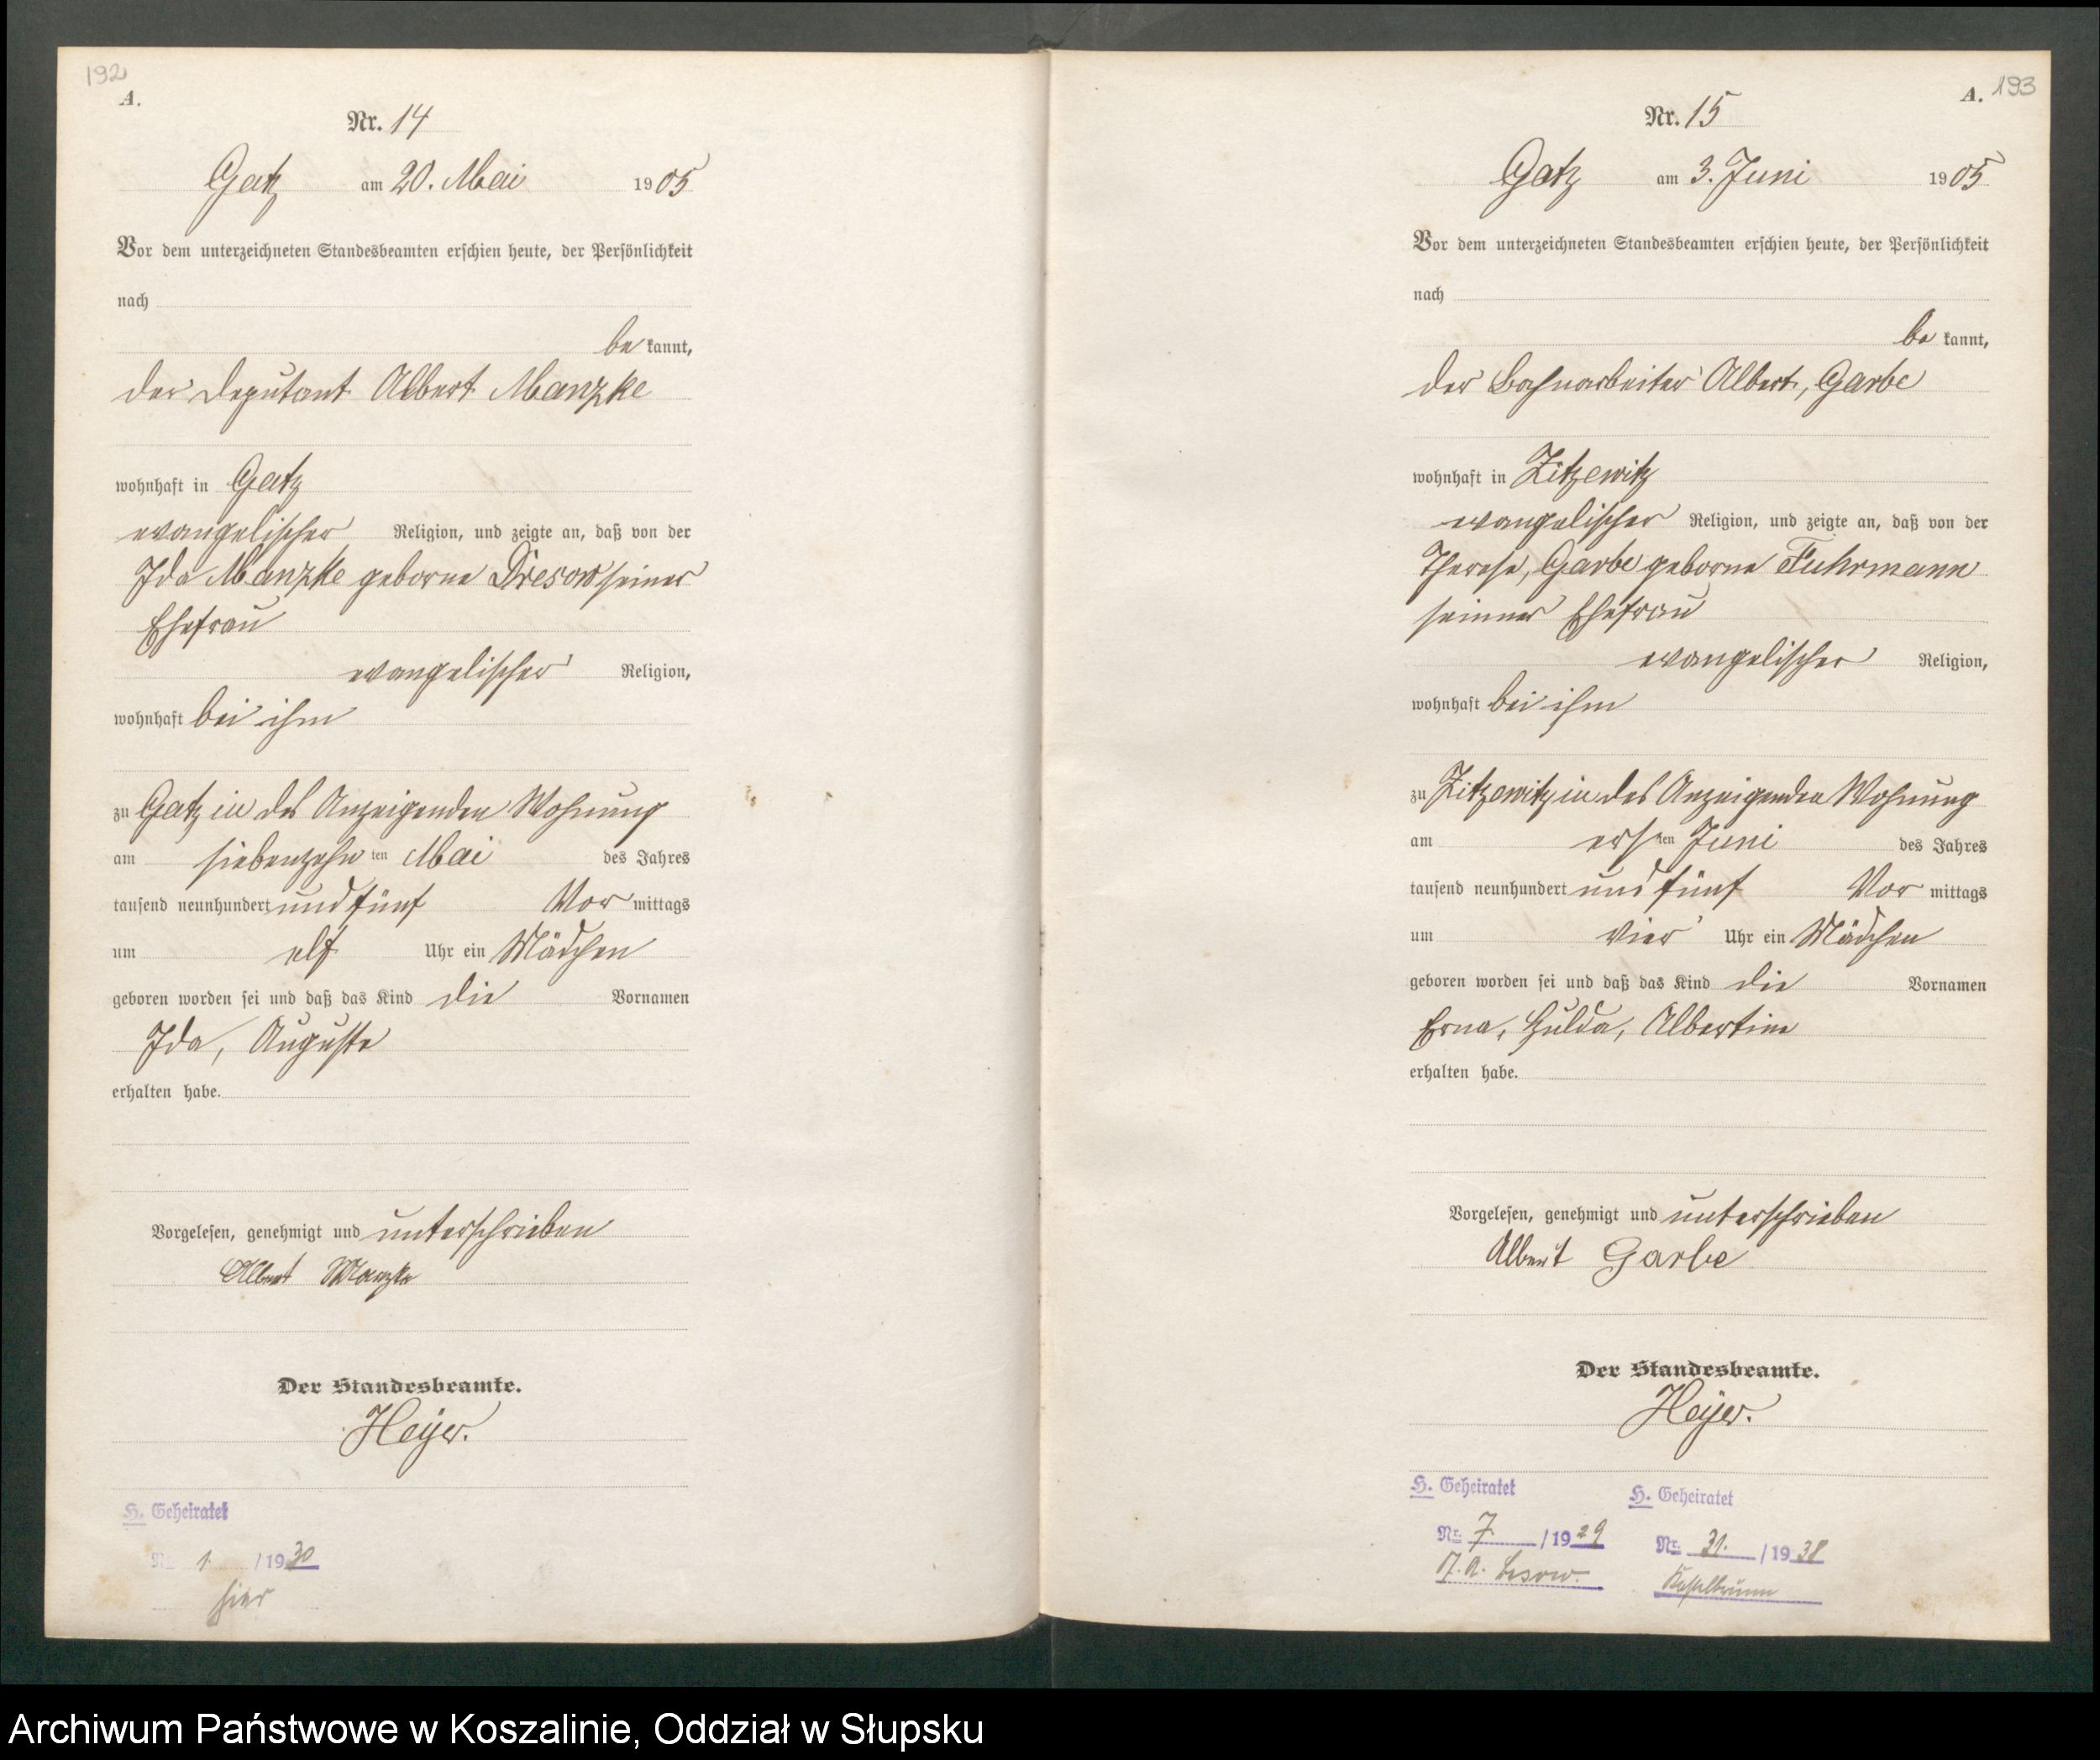 192
A.
Nr. 14
Gatz am 20. Mai 1905
Vor dem unterzeichneten Standesbeamten erschien heute, der Persönlichkeit
nach
be kannt,
der Deputant Albert Manzke
wohnhaft in Gatz
evangelischer Religion, und zeigte an, daß von der
Ida Manzke geborne Dresow seiner
Ehefrau
evangelischer Religion,
wohnhaft bei ihm
zu Gatz in des Anzeigenden Wohnung
am siebenzehn ten Mai des Jahres
tausend neunhundert und fünf Vor mittags
um elf Uhr ein Mädchen
geboren worden sei und daß das Kind die Vornamen
Ida, Auguste
erhalten habe.
Vorgelesen, genehmigt und unterschrieben
Albert Manzke
Der Standesbeamte.
Heyer.
H. Geheiratet
Nr. 1. /1930
hier
A. 193
Nr. 15
Gatz am 3. Juni 1905
Vor dem unterzeichneten Standesbeamten erschien heute, der Persönlichkeit
nach
be kannt,
der Bahnarbeiter Albert, Garbe
wohnhaft in Zitzewitz
evangelischer Religion, und zeigte an, daß von der
Therese, Garbe geborne Fuhrmann
seinner Ehefrau
evangelischer Religion,
wohnhaft bei ihm
zu Zitzewitz in des Anzeigenden Wohnung
am ers ten Juni des Jahres
tausend neunhundert und fünf Vor mittags
um vier Uhr ein Mädchen
geboren worden sei und daß das Kind die Vornamen
Erna, Hulda, Albertine
erhalten habe.
Vorgelesen, genehmigt und unterschrieben
Albert Garbe
Der Standesbeamte.
Heyer.
H. Geheiratet
Nr. 7. /1929
H. Geheiratet
Nr. 31. /1938
Archiwum Państwowe w Koszalinie, Oddział w Słupsku